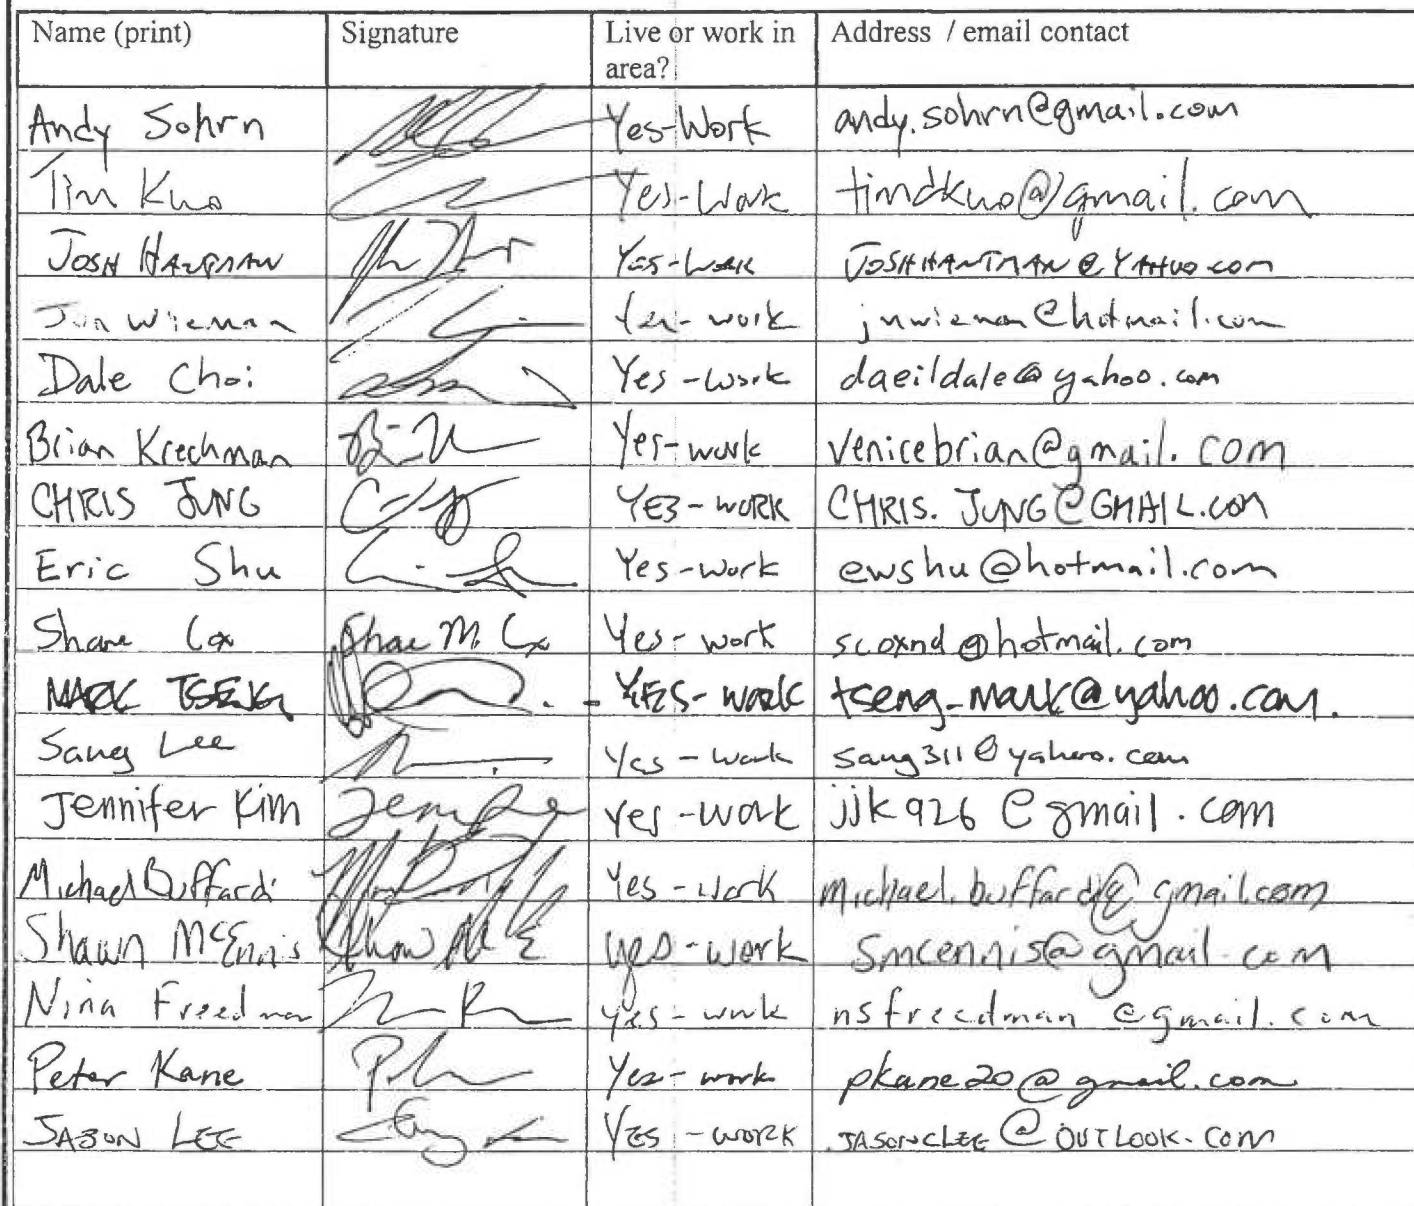 Name (print) Signature Live or work in area? Address / email contact
Andy Sohrn Yes-Work andy.sohrn@gmail.com
Tim Kuo Yes-Work timdkuo@gmail.com
JOSH HANTMAN YES-WORK JOSHHANTMAN@YAHOO.com
Jon Wieman Yes-work jnwieman@hotmail.com
Dale Choi Yes-work daeildale@yahoo.com
Brian Krechman Yes-work venicebrian@gmail.com
CHRIS JUNG YES-WORK CHRIS.JUNG@GMAIL.COM
Eric Shu Yes-work ewshu@hotmail.com
Shane Cox Shane M. Cox Yes-work scoxnd@hotmail.com
MARK TSENG YES-WORK tseng_mark@yahoo.com.
Sang Lee Yes-work sang311@yahoo.com
Jennifer Kim Yes-work jjk926@gmail.com
Michael Buffardi Yes-work michael.buffardi@gmail.com
Shawn McEnnis yes-work smcennis@gmail.com
Nina Freedman yes-work nsfreedman@gmail.com
Peter Kane Yes-work pkane20@gmail.com
JASON LEE YES-WORK JASONCLEE@OUTLOOK.COM